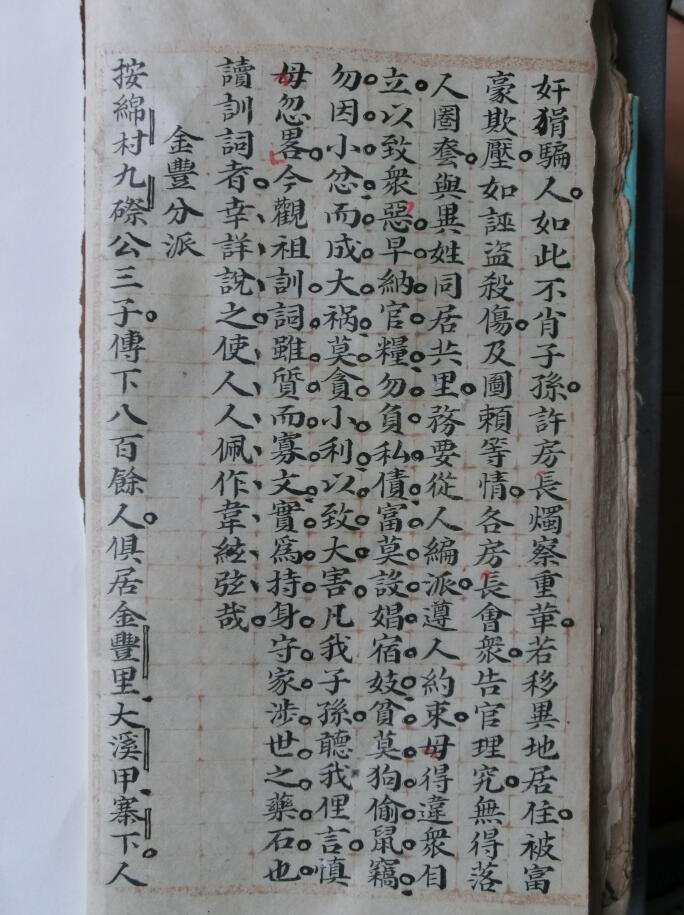 奸猾騙人。如此不肖子孫。許房長燭察重革。若移異地居住。被富
豪欺壓。如誣盜殺傷。及圖賴等情。各房長會衆。告官理究。無得落
人圈套。與異姓同居共里。務要從人編派。遵人約束。毋得違衆自
立。以致衆惡。早納官糧。勿負私債。富莫設娼宿妓。貧莫狗偷鼠竊。
勿因小忿而成大祸。莫貪小利以致大害。凡我子孫。聽我俚言。慎
毋忽畧。今觀祖訓詞。雖質而寡文。實爲持身守家涉世之藥石也。
讀訓詞者。幸詳說之。使人人佩作韋絃弦哉。
金豐分派
按綿村九磜公三子。傳下八百餘人。俱居金豐里、大溪甲、寨下。人